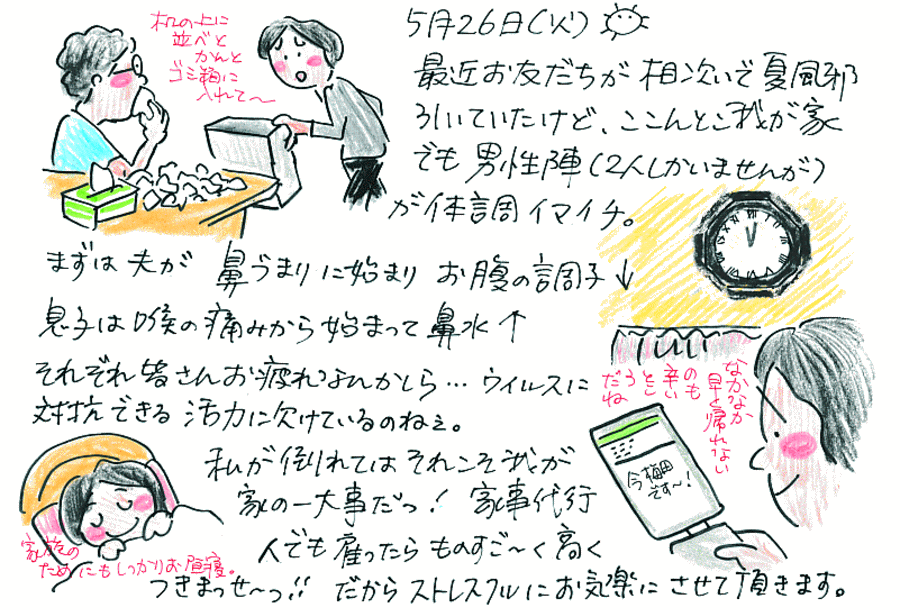 机の上に
並べと
かんと
ゴミ箱に
入れて～
5月26日(火)
最近お友だちが相次いで夏風邪
引いていたけど、ここんとこ我が家
でも男性陣(2人しかいませんが)
が体調イマイチ。
まずは夫が 鼻づまりに始まり お腹の調子↓
息子は喉の痛みから始まって鼻水↑
それぞれ皆さんお疲れなんかしら…ウイルスに
対抗できる活力に欠けているのねぇ。
なかなか
早く帰れない
のも
辛い
とこ
ろ
だね
今梅田
です～!
私が倒れてはそれこそ我が
家の一大事だっ! 家事代行
人でも雇ったらものすご～く高く
つきまっせ～っ!! だからストレスフルにお気楽にさせて頂きます。
家族の
ためにもしっかりお昼寝。